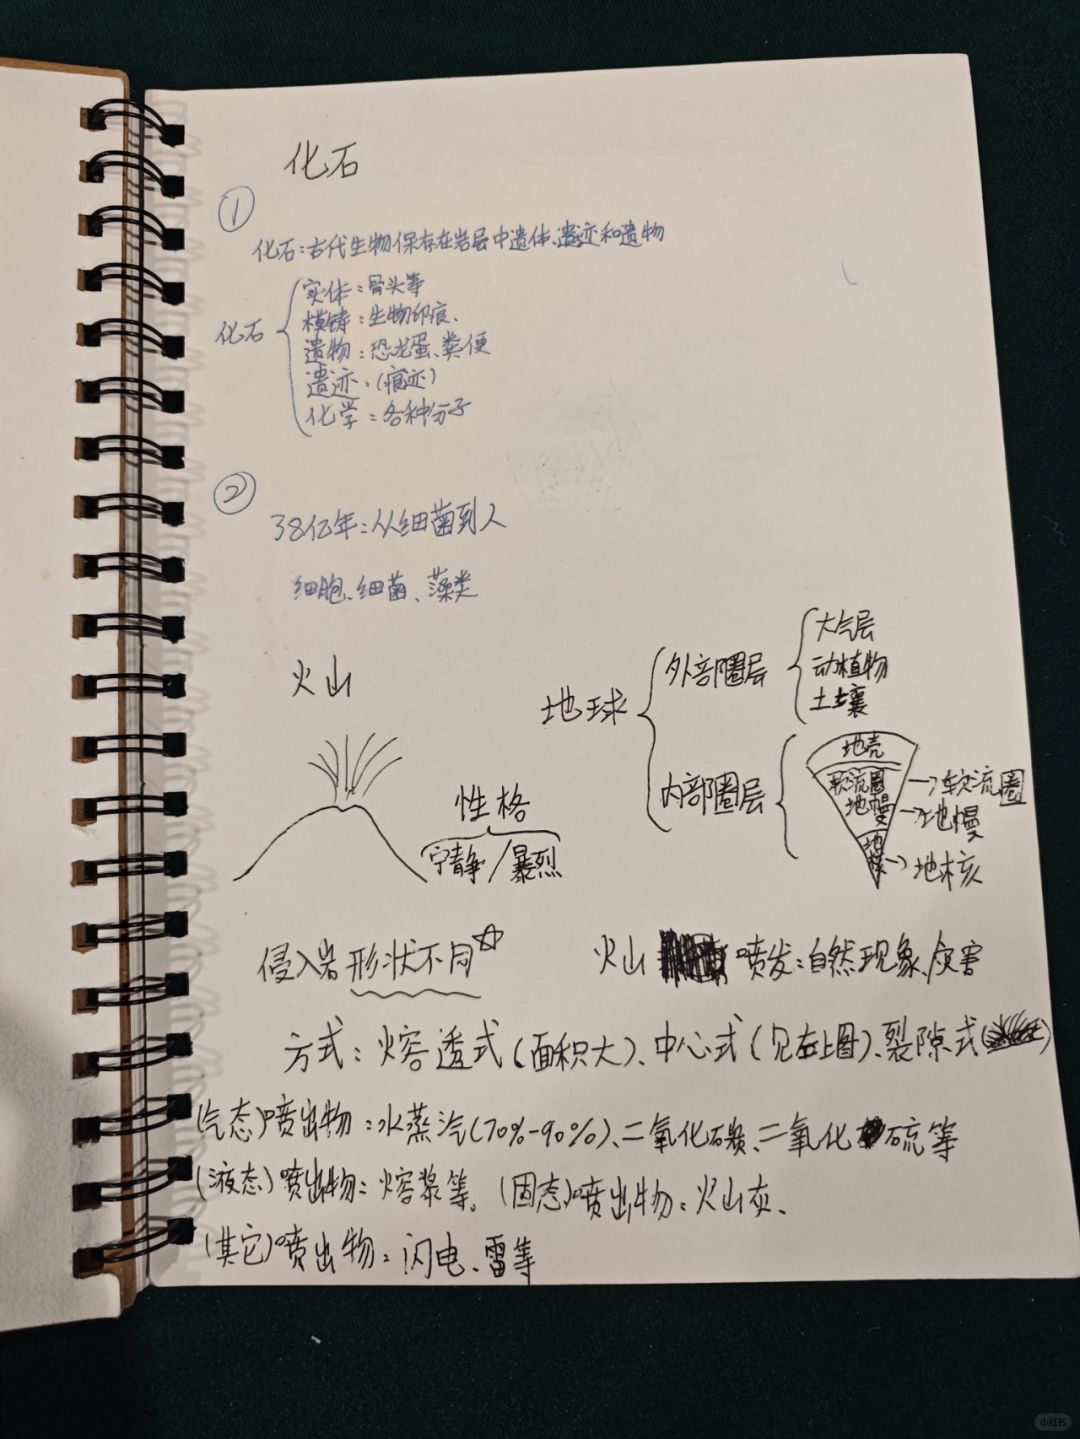 化石
①
化石：古代生物保存在岩层中遗体、遗迹和遗物
化石
实体：骨头等
模铸：生物印痕、
遗物：恐龙蛋、粪便
遗迹：(痕迹)
化学：各种分子
②
38亿年：从细菌到人
细胞、细菌、藻类
火山
性格
宁静/暴烈
地球
外部圈层
大气层
动植物
土壤
内部圈层
地壳
软流圈
地幔
地核
→软流圈
→地幔
→地核
侵入岩形状不同☆
火山喷发：自然现象、灾害
方式：熔透式(面积大)、中心式(见左上图)、裂隙式
(气态)喷出物：水蒸汽(70%-90%)、二氧化碳、二氧化硫等
(液态)喷出物：熔浆等。(固态)喷出物：火山灰、
(其它)喷出物：闪电、雷等
小红书